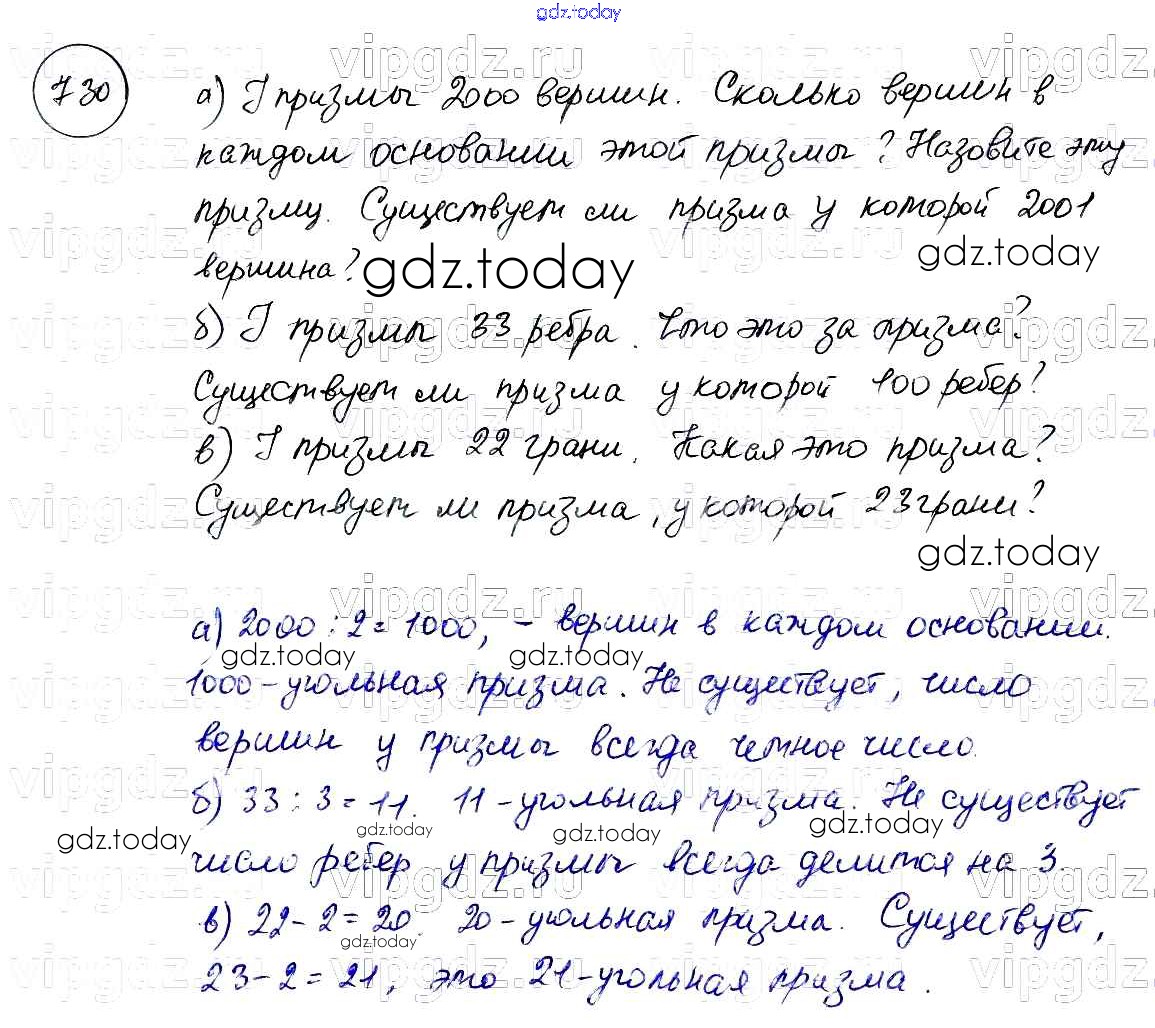 gdz.today
730
а) У призмы 2000 вершин. Сколько вершин в
каждом основании этой призмы? Назовите эту
призму. Существует ли призма у которой 2001
вершина?
gdz.today
gdz.today
б) У призмы 33 ребра. Что это за призма?
Существует ли призма у которой 100 ребер?
в) У призмы 22 грани. Какая это призма?
Существует ли призма, у которой 23 грани?
gdz.today
а) 2000 : 2 = 1000, – вершин в каждом основании.
gdz.today
gdz.today
1000 – угольная призма. Не существует, число
вершин у призмы всегда четное число.
б) 33 : 3 = 11. 11 – угольная призма. Не существует
gdz.today
gdz.today
gdz.today
gdz.today
число ребер у призмы всегда делится на 3.
в) 22 – 2 = 20. 20 – угольная призма. Существует,
gdz.today
23 – 2 = 21, это 21 – угольная призма.
vipgdz.ru